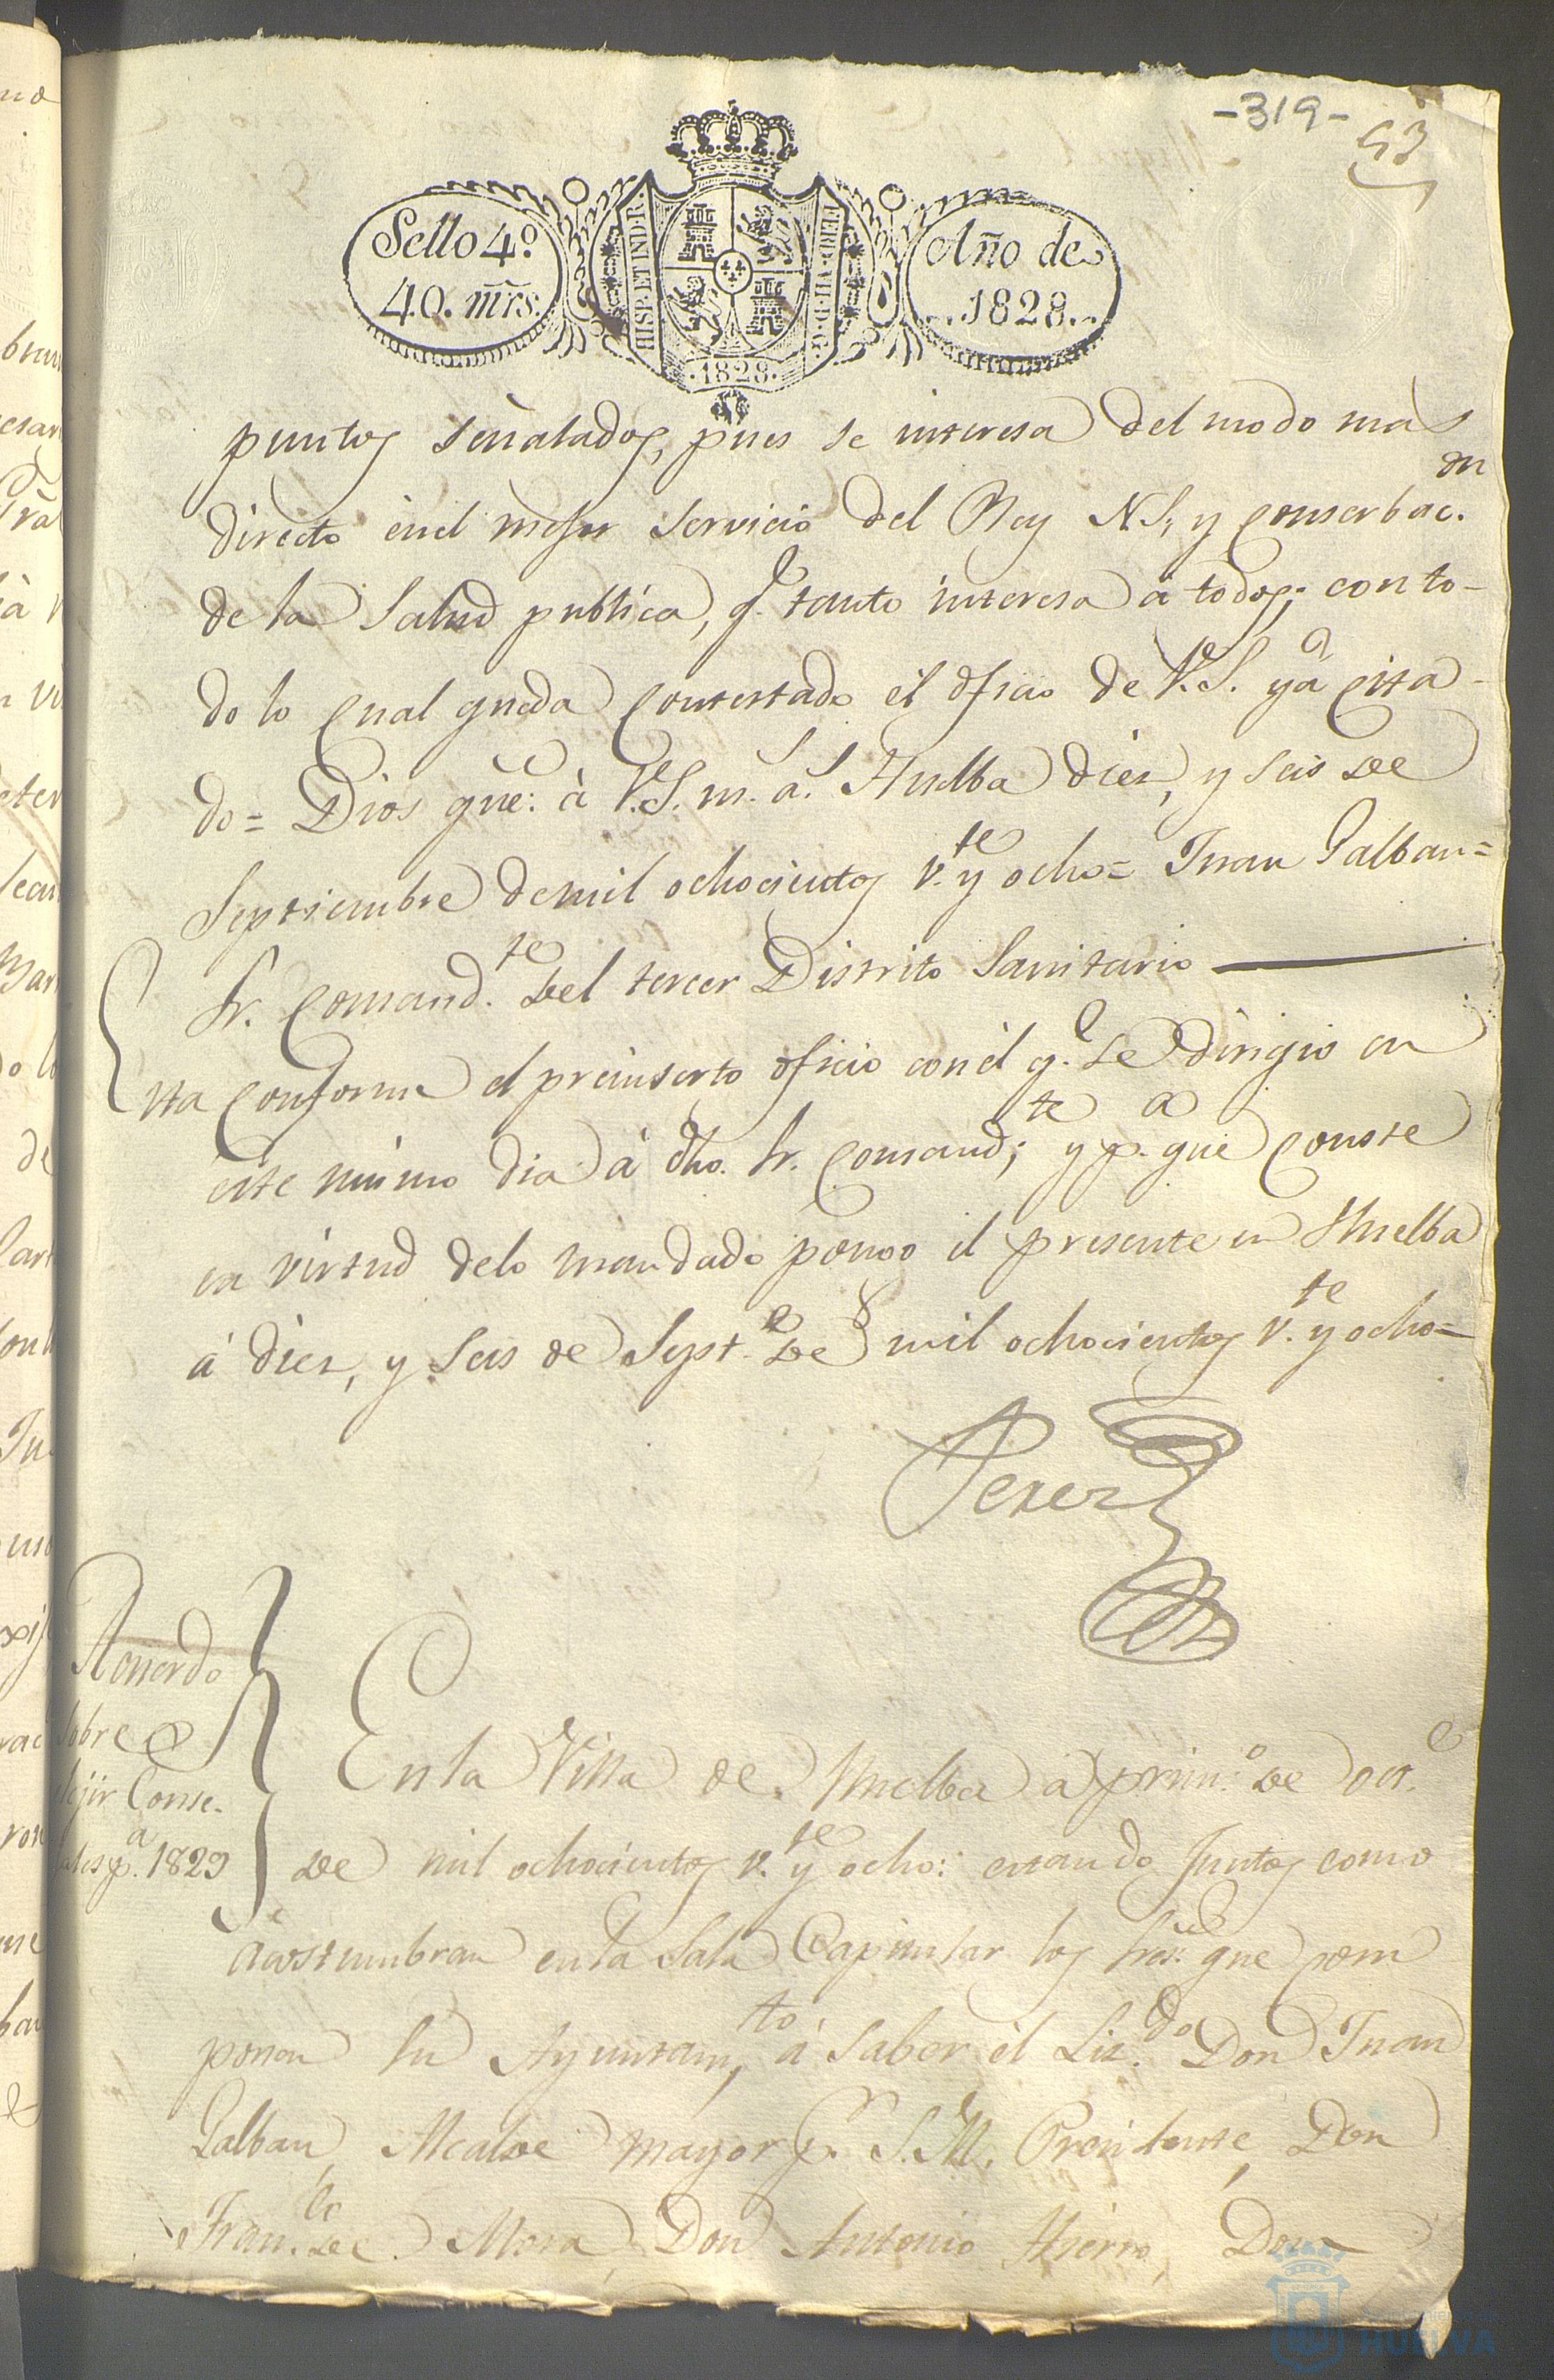 -319-
53
Sello 4º
40. mrs.
HISP. ET IND. R.
FERD. VII. D. G.
1828.
Año de
1828.
puntos señalados, pues se interesa del modo mas
directo en el mejor servicio del Rey N.S, y conserbac.on
de la Salud publica, q.e tanto interesa á todos; con to-
do lo cual queda contestado el oficio de V.S. ya cita-
do= Dios gue. à V.S. m. a.s Huelba diez, y seis de
Septiembre de mil ochocientos v.te y ocho= Juan Galban=
Sr. Comand.te del tercer Distrito Sanitario
Sta conforme el preinserto oficio con el q.e se dirigió en
este mismo dia á dho. Sr. Comand.te; y p.a que conste
en virtud de lo mandado pongo el presente en Huelba
á diez, y seis de Sept.e de mil ochocientos v.te y ocho=
Perez
Acuerdo
sobre
elejir Conse-
jales p.a 1829
En la Villa de Huelba á prim.o de oct.e
de mil ochocientos v.te y ocho: estando juntos como
acostumbran en la Sala Capitular los Sres. que com
ponen su Ayuntam.to, á saber el Liz.do Don Juan
Galban, Alcalde mayor p.r S.M. Presidente, Don
Fran.co de Mora, Don Antonio Hierro, Don
HUELVA